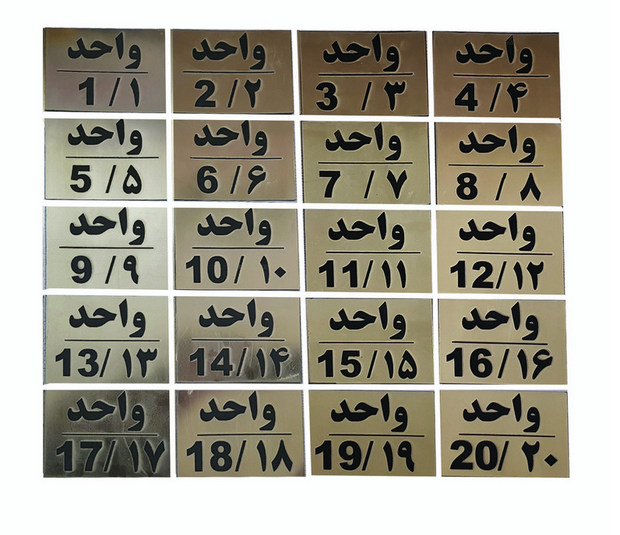 واحد
1/۱
واحد
2/۲
واحد
3/۳
واحد
4/۴
واحد
5/۵
واحد
6/۶
واحد
7/۷
واحد
8/۸
واحد
9/۹
واحد
10/۱۰
واحد
11/۱۱
واحد
12/۱۲
واحد
13/۱۳
واحد
14/۱۴
واحد
15/۱۵
واحد
16/۱۶
واحد
17/۱۷
واحد
18/۱۸
واحد
19/۱۹
واحد
20/۲۰